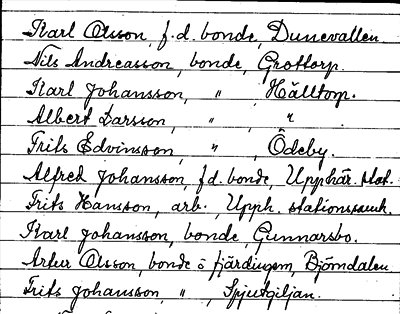 Karl Olsson, f.d. bonde, Dunevallen
Nils Andreasson, bonde, Grottorp.
Karl Johansson, " Hälltorp.
Albert Larsson, " "
Frits Edvinsson, " Ödeby.
Alfred Johansson, f.d. bonde, Upphär. stat.
Frits Hansson, arb., Upph. stationssamh.
Karl Johansson, bonde, Gunnarsbo.
Artur Olsson, bonde o fjärdingsm, Björndalen
Frits Johansson, " , Spjutgiljan.